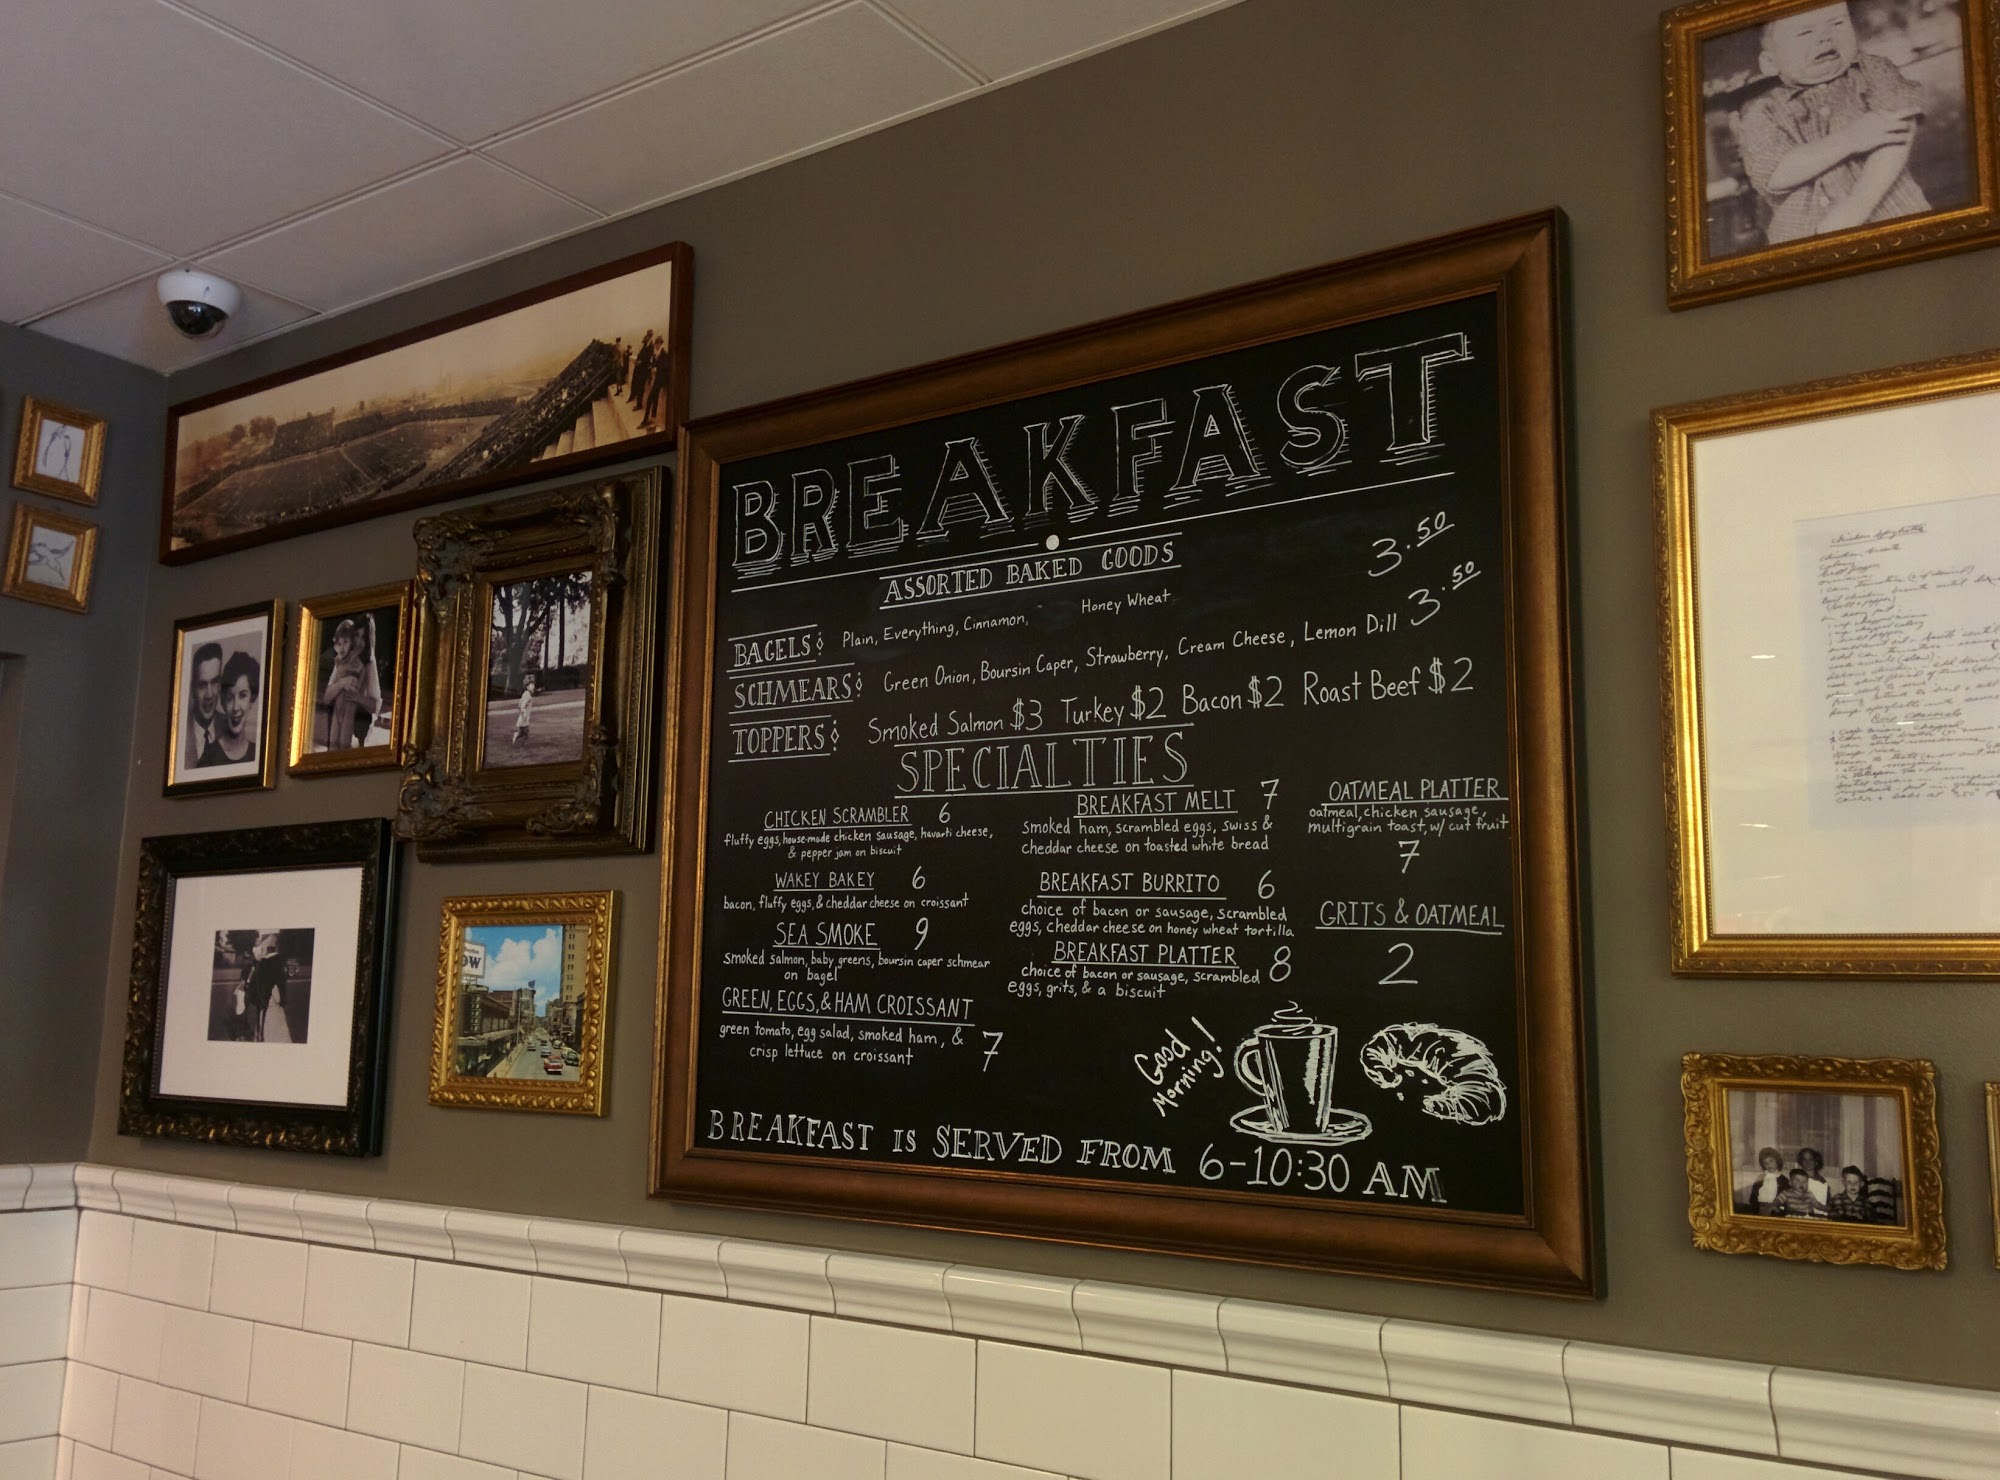 BREAKFAST
ASSORTED BAKED GOODS
3.50
BAGELS: Plain, Everything, Cinnamon, Honey Wheat
SCHMEARS: Green Onion, Boursin Caper, Strawberry, Cream Cheese, Lemon Dill 3.50
TOPPERS: Smoked Salmon $3 Turkey $2 Bacon $2 Roast Beef $2
SPECIALTIES
CHICKEN SCRAMBLER 6
fluffy eggs, house-made chicken sausage, havarti cheese,
& pepper jam on biscuit
WAKEY BAKEY 6
bacon, fluffy eggs, & cheddar cheese on croissant
SEA SMOKE 9
smoked salmon, baby greens, boursin caper schmear
on bagel
GREEN, EGGS, & HAM CROISSANT
green tomato, egg salad, smoked ham, &
crisp lettuce on croissant 7
BREAKFAST MELT 7
smoked ham, scrambled eggs, swiss &
cheddar cheese on toasted white bread
BREAKFAST BURRITO 6
choice of bacon or sausage, scrambled
eggs, cheddar cheese on honey wheat tortilla
BREAKFAST PLATTER 8
choice of bacon or sausage, scrambled
eggs, grits, & a biscuit
OATMEAL PLATTER
oatmeal, chicken sausage,
multigrain toast, w/ cut fruit
7
GRITS & OATMEAL
2
Good
Morning!
BREAKFAST IS SERVED FROM 6-10:30 AM
OW
Chicken Spaghetti